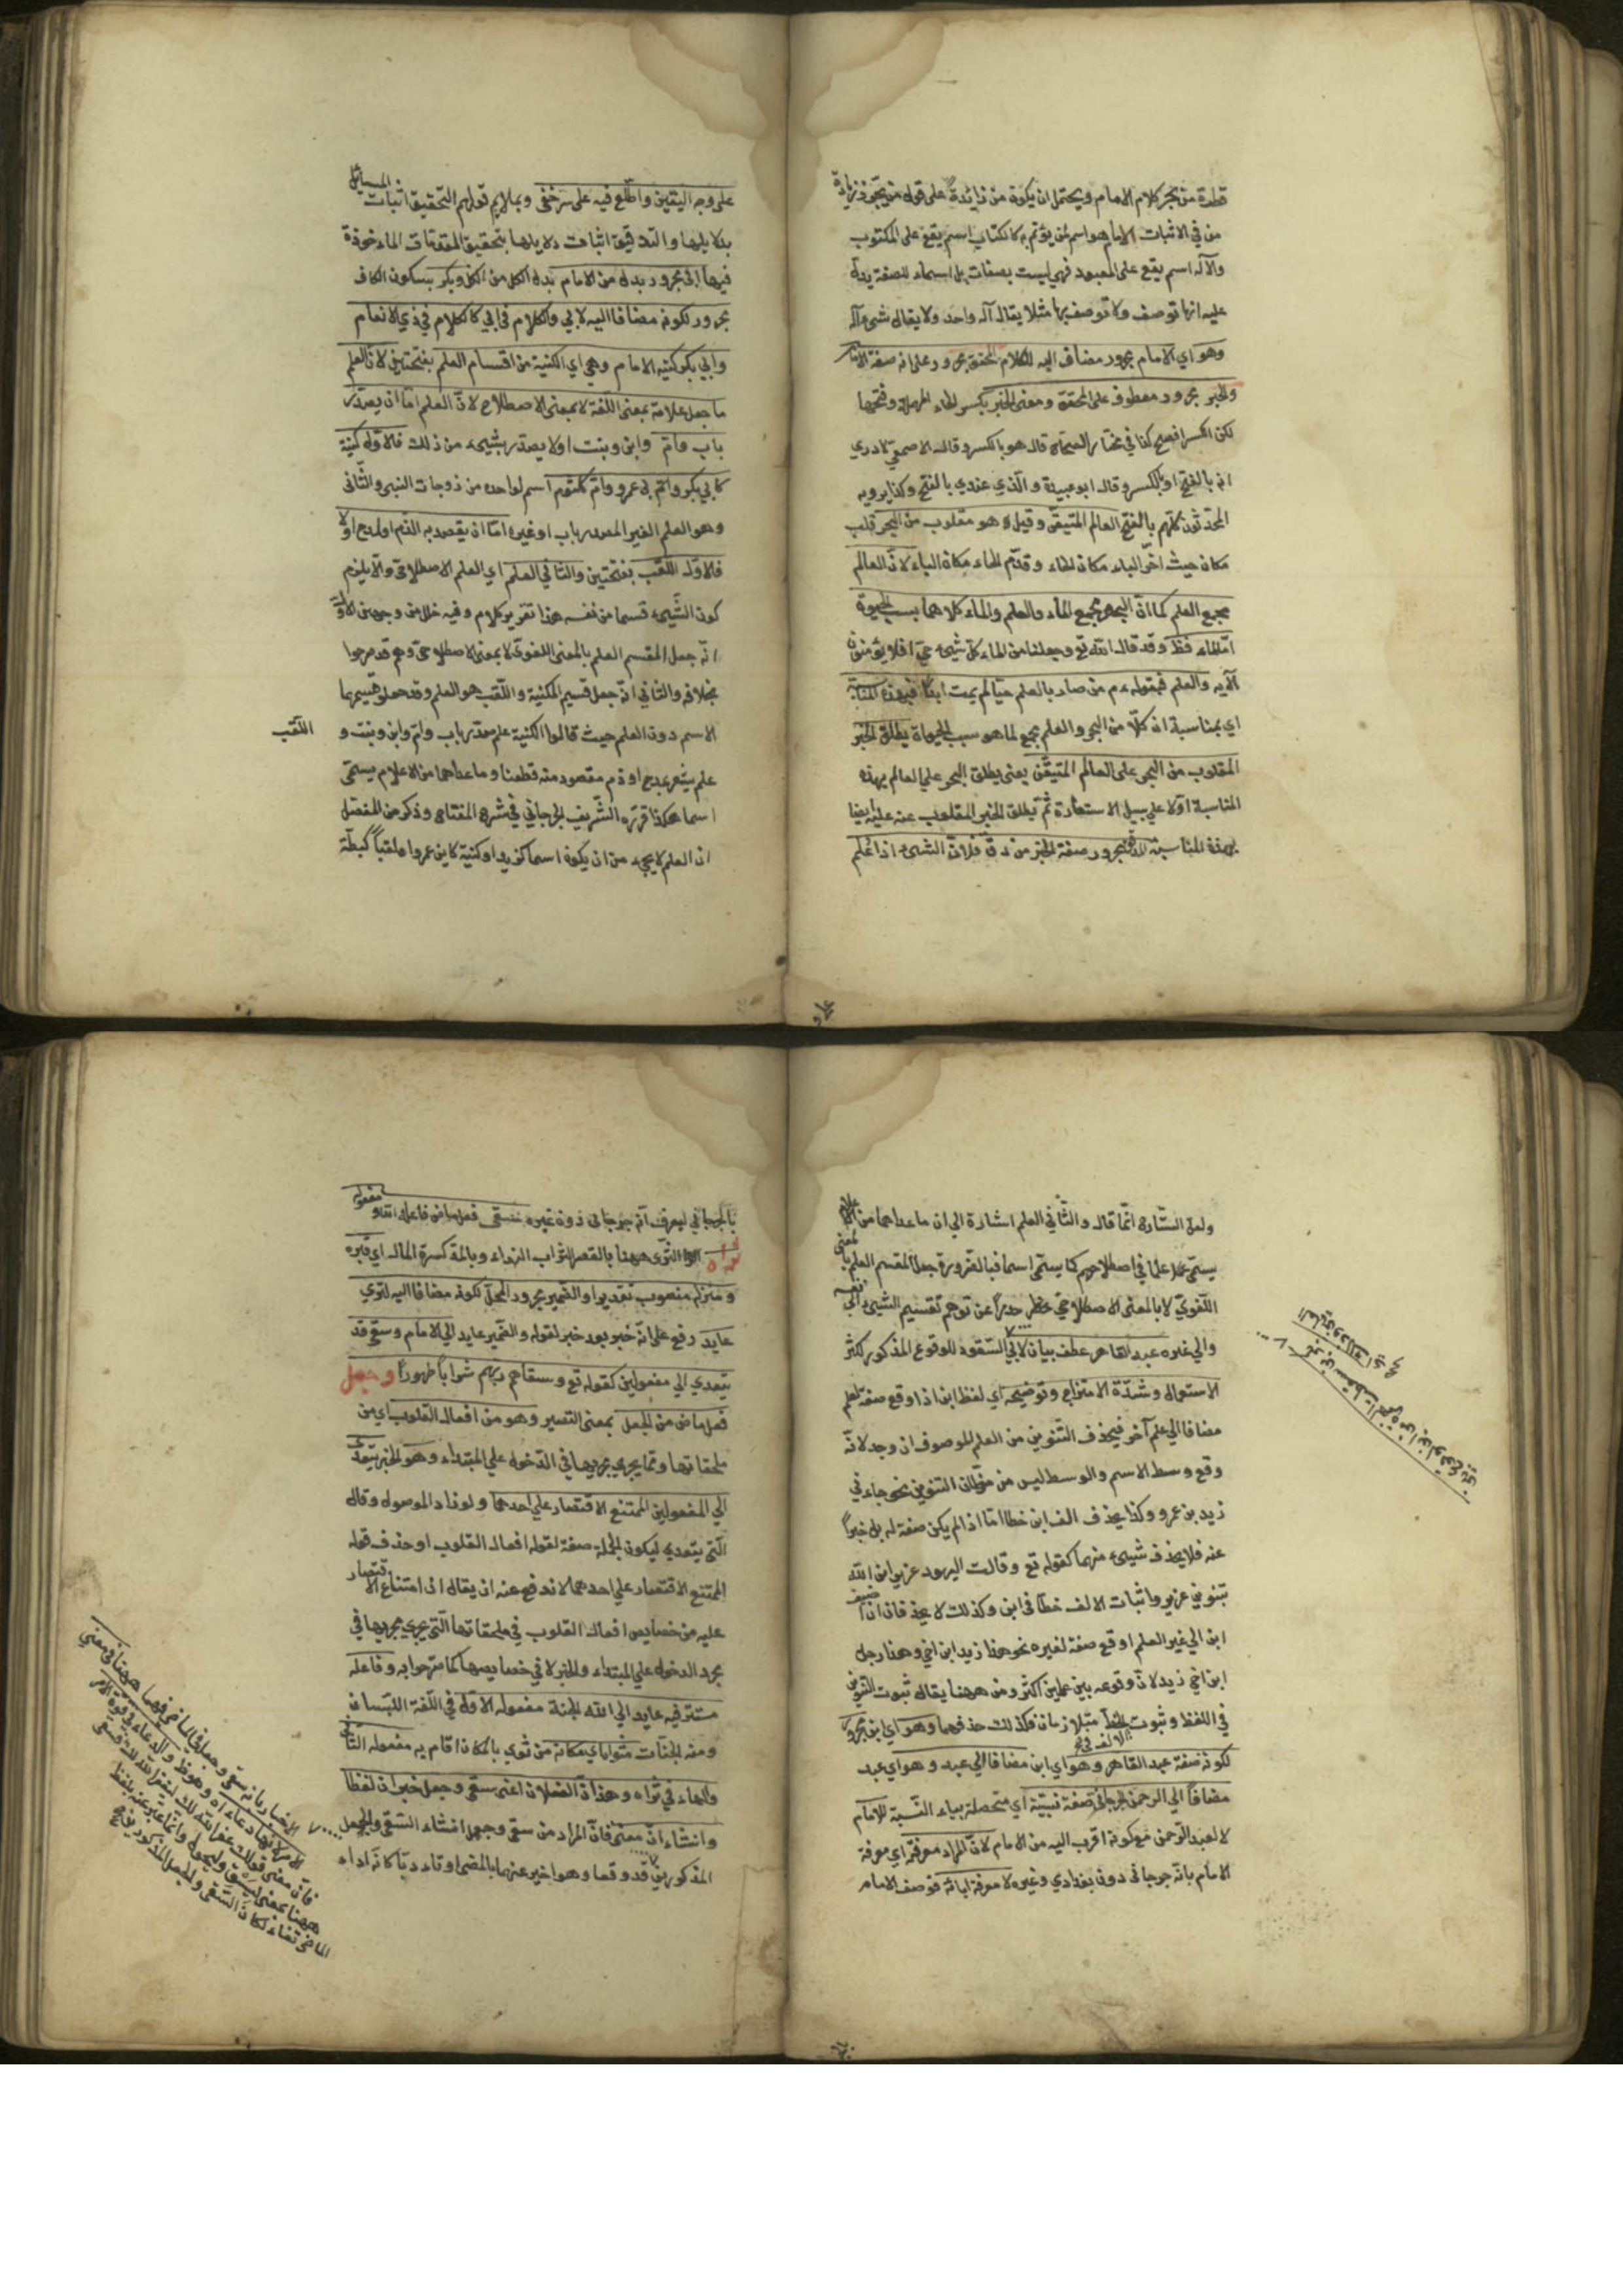 قطرة من بحر كلام الامام ويحتمل ان يكون من زائدة على قول من يجوز زيادة
من في الاثبات الامام هو اسم لمن يؤتم به كالكتاب اسم يقع على المكتوب
والآله اسم يقع على المعبود فهي ليست بصفات بل اسماء للصفة يدل
عليه انها توصف ولا توصف بها مثلا يقال آله واحد ولا يقال شيء آله
وهو اي الامام مجرور مضاف اليه للكلام المحقق مجرور على انه صفة الامام
والحبر مجرور معطوف على المحقق ومعنى الحبر بكسر الحاء المهملة وفتحها
لكن الكسر افصح كذا في مختار الصحاح قال هو بالكسر وقال الاصمعي لا ادري
انه بالفتح او بالكسر وقال ابو عبيدة والذي عندي بالفتح وكذا يرويه
المحدثون كلهم بالفتح العالم المتيقن وقيل هو مقلوب من البحر قلب
مكان حيث اخر الباء مكان الحاء وقدم الحاء مكان الباء لان العالم
مجمع العلم كما ان البحر مجمع الماء والعلم والماء كلاهما سبب الحيوة
اما الماء فظ وقد قال الله تع وجعلنا من الماء كل شيء حي افلا يؤمنون
الآية والعلم فبقوله عم من صار بالعلم حيا لم يمت ابدا فبهذه المناسبة
اي بمناسبة ان كلا من البحر والعلم مجمع لما هو سبب الحياة يطلق الحبر
المقلوب من البحر على العالم المتيقن يعنى يطلق البحر على العالم بهذه
المناسبة اولا على سبيل الاستعارة ثم يطلق الحبر المقلوب عنه عليه ايضا
بهذه المناسبة مجرور صفة الحبر من دق فلان الشيء اذا علم
على وجه اليقين واطلع فيه على سر خفى وبملايم قولهم التحقيق اثبات المسائل
بدلايلها والتدقيق اثبات دلايلها بتحقيق المقدمات الماءخوذة
فيها ابى مجرور بدل من الامام بدل الكل من الكل وبكر بسكون الكاف
مجرور لكونه مضافا اليه لابي والكلام في ابي كالكلام في ذي الانعام
وابي بكر كنية الامام وهي اي الكنية من اقسام العلم بفتحتين لان العلم
ما جعل علامة بمعنى اللغة لا بمعنى الاصطلاح لان العلم اما ان يصدر
باب وام وابن وبنت اولا يصدر بشيء من ذلك فالاول كنية
كابي بكر وام بني عمرو وام كلثوم اسم لواحدة من زوجات النبي والثانى
وهو العلم الغير المصدر باب او غيره اما ان يقصد به الذم او المدح اولا
فالاول اللقب بفتحتين والثاني العلم اي العلم الاصطلاحي والا يلزم
كون الشيء قسما من نفسه هذا تقرير كلام وفيه خلل من وجهين الاول
انه جعل المقسم العلم بالمعنى اللغوي لا بمعنى الاصطلاحي وهم قد صرحوا
بخلافه والثاني انه جعل قسيم الكنية واللقب هو العلم وقد جعلوا قسيمهما
الاسم دون العلم حيث قالوا الكنية علم مصدر باب وام وابن وبنت و
اللقب
علم يشعر بمدح او ذم مقصود منه قطعا وما عداهما من الاعلام يسمى
اسما هكذا قرره الشريف الجرجاني في شرح المفتاح وذكر من المفصل
ان العلم لا يجيء من ان يكون اسما كزيد او كنية كابن عمرو او ملقبا كبطة
ولعل الشارح انما قال والثاني العلم اشارة الى ان ما عداهما من الاعلام
يسمى علما في اصطلاحهم كما يسمى اسما فبالضرورة جعل المقسم العلم بالمعنى
اللغوي لا بالمعنى الاصطلاحي حذرا عن توهم تقسيم الشيء الى نفسه
والى غيره عبد القاهر عطف بيان لابي للوقوع المذكور لكثر
الاستعمال وشدة الامتزاج وتوضيحه اي لفظ ابن اذا وقع صفة لعلم
مضافا الى علم آخر فيحذف التنوين من العلم الموصوف ان وجد لانه
وقع وسط الاسم والوسط ليس من مظان التنوين نحو جاءني
زيد بن عمرو وكذا يحذف الف ابن خطا اما اذا لم يكن صفة له بل خبرا
عنه فلا يحذف شيء منهما كقوله تع وقالت اليهود عزير ابن الله
بتنوين عزير واثبات الالف خطا في ابن وكذلك لا يحذفان اذا اضيف
ابن الى غير العلم او وقع صفة لغيره نحو هذا زيد ابن اخي وهذا رجل
ابن اخي زيد لان وقوعه بين علمين اكثر ومن ههنا يقال ثبوت التنوين
في اللفظ وثبوت الالف في الخط متلازمان فكذلك حذفهما وهو اي ابن مجرور
لكونه صفة عبد القاهر وهو اي ابن مضافا الى عبد وهو اي عبد
مضافا الى الرحمن الجرجانى صفة نسبية اي متحصلة بياء النسبة للامام
لا لعبد الرحمن مع كونه اقرب اليه من الامام لان المراد معرفته اي معرفة
الامام بانه جرجاني دون بغدادي وغيره لا معرفة ابائه فوصف الامام
بالجرجاني ليعرف انه جرجانى دون غيره سقى فعل ماض فاعله الله مفعوله
الثرى ههنا بالقصر التراب النداء وبالمد كسرة المال اي قبره
ومنزله منصوب تقديرا والضمير مجرور المحل لكونه مضافا اليه لثرى
عايد رفع على انه خبر بعد خبر لقوله والضمير عايد الى الامام وسقى قد
يتعدي الى مفعولين كقوله تع وسقاهم ربهم شرابا طهورا وجعل
فعل ماض من الجعل بمعنى التصيير وهو من افعال القلوب اي من
ملحقاتها ومما يجري مجريها في الدخول على المبتداء وهو الخبر يتعدى
الى المفعولين الممتنع الاقتصار على احدهما ولو زاد الموصول وقال
التي يتعدي ليكون الجملة صفة لقوله افعال القلوب او حذف قوله
الممتنع الاقتصار على احدهما لاندفع عنه ان يقال ان امتناع الاقتصار
عليه من خصايص افعال القلوب في ملحقاتها التي يجري مجريها في
مجرد الدخول على المبتداء والخبر لا في خصايصها كما صرحوا به وفاعله
مستتر فيه عايد الى الله الجنة مفعوله الاول في اللغة البستان
ومنه الجنات مثواه اي مكانه من ثوي بالمكان اذا قام به مفعوله الثاني
والهاء في ثراه وهذان الفعلان اعنى سقى وجعل خبران لفظا
وانشاءان معنى فان المراد من سقى وجعل انشاء السقى والجعل
المذكورين قدوقعا وهو اخبر عنهما بالمضى او تاءدبا كانه اداه